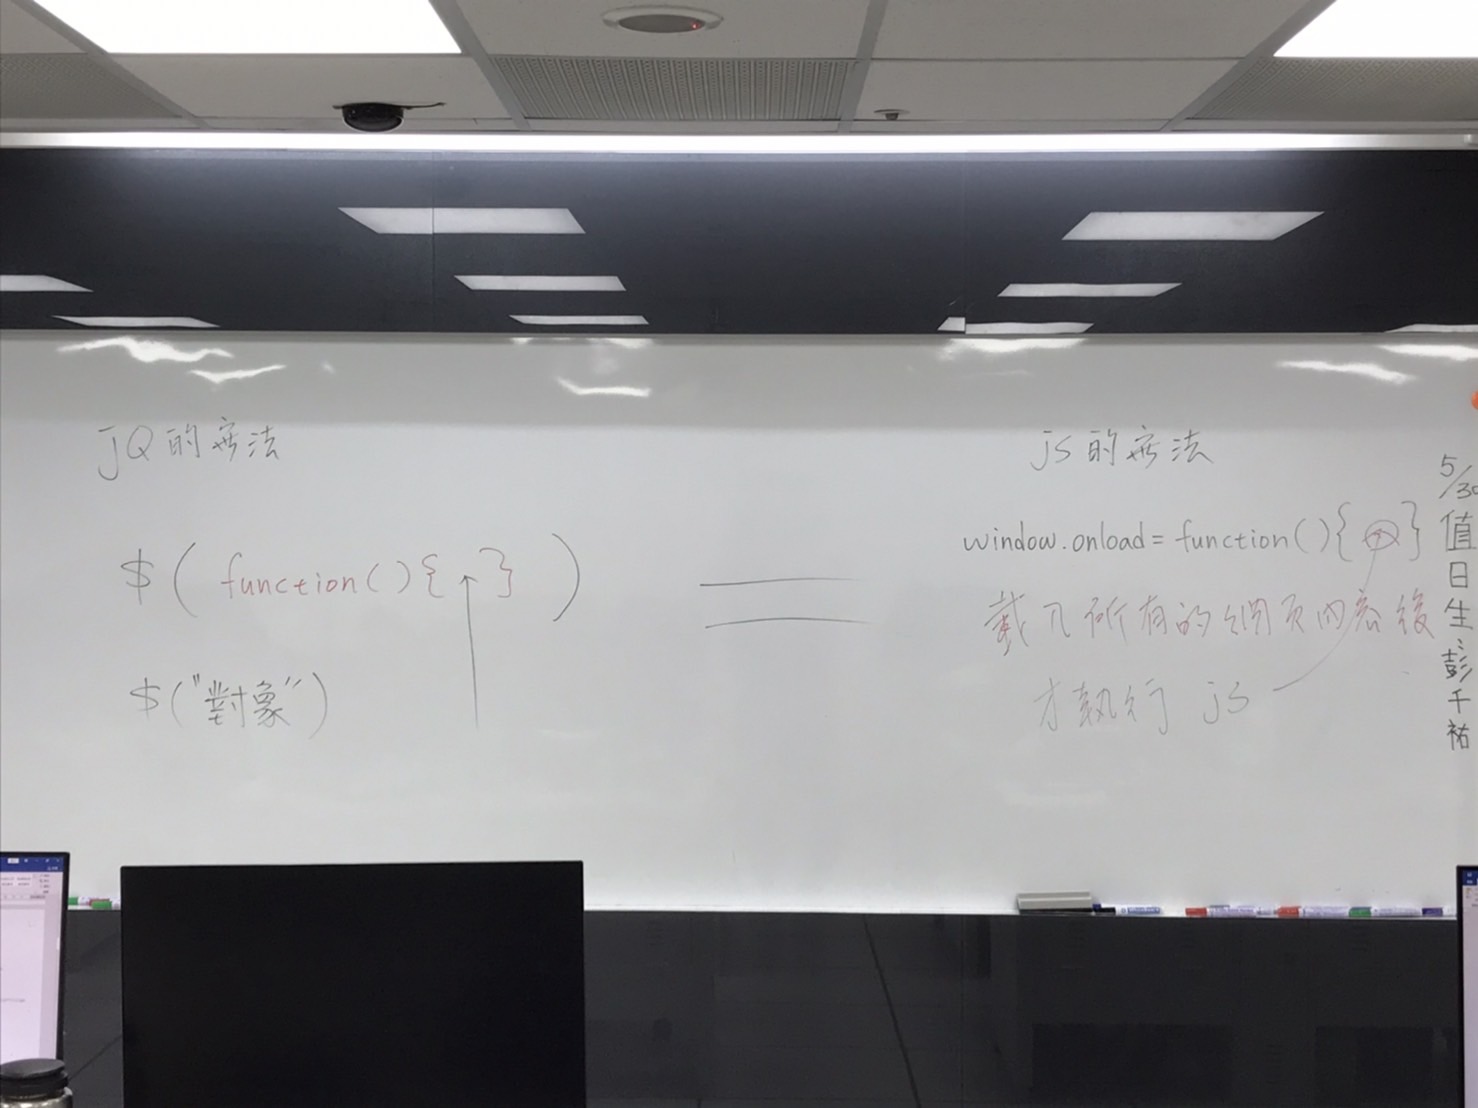 jQ的寫法
$( function(){ } )
$("對象")
js的寫法
window.onload = function(){ }
載入所有的網頁內容後
才執行 js
5/30
值日生:彭千祐